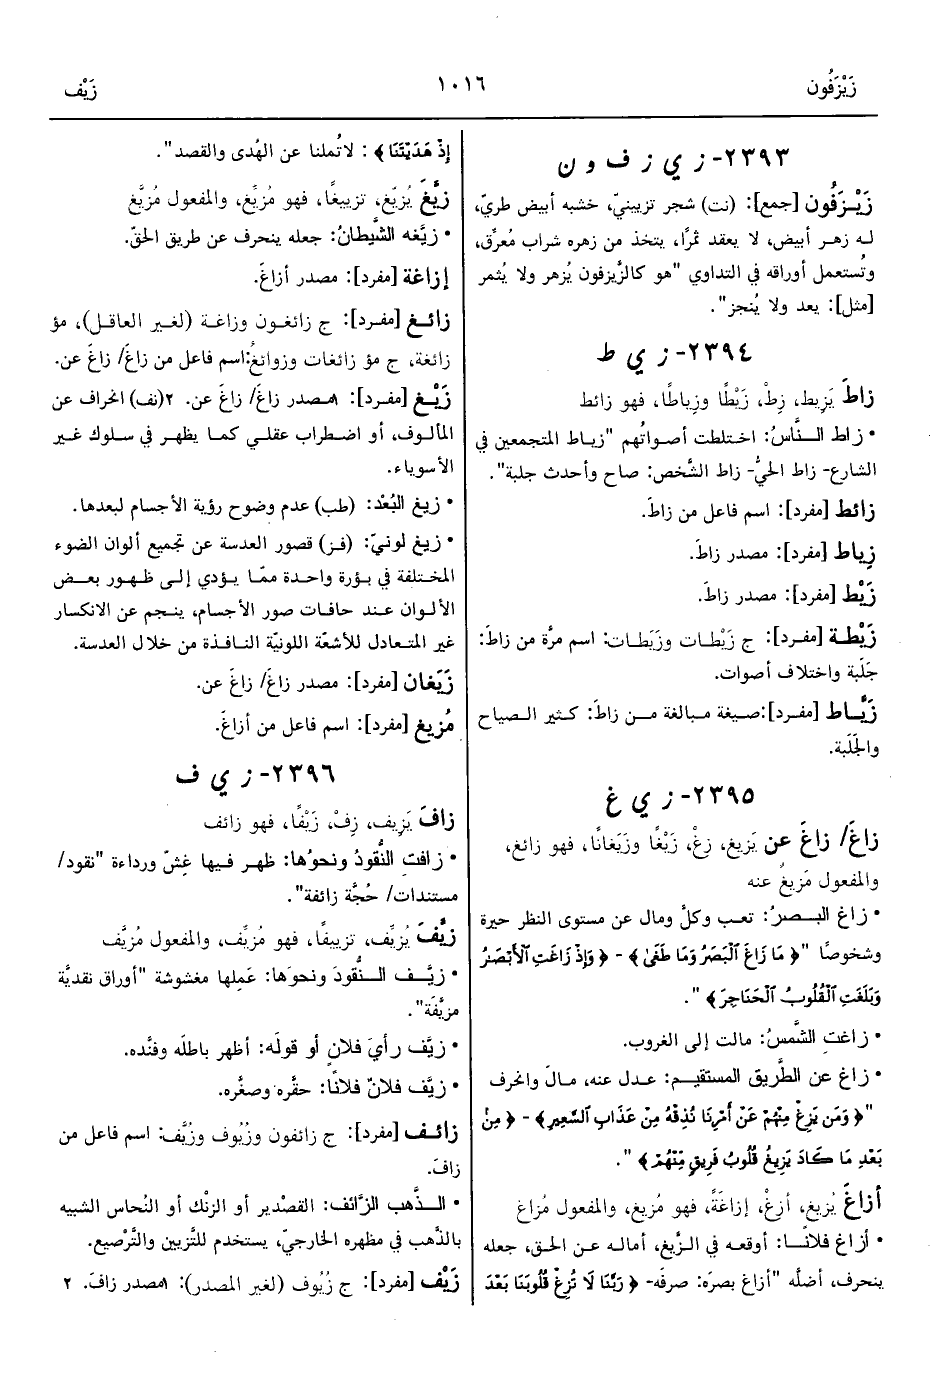 زَيْزَفُون
١٠١٦
زَيْف
٢٣٩٣- ز ي ز ف و ن
زَيْـزَفُون [جمع]: (نت) شجر تزيينيّ، خشبه أبيض طريّ،
لـه زهـر أبيض، لا يعقد ثمرًا، يتخذ من زهره شراب مُعرِّق،
وتُستعمل أوراقه في التداوي "هو كالزَّيزفون يُزهر ولا يُثمر
[مثل]: يعد ولا يُنجز".
٢٣٩٤- ز ي ط
زاطَ يَزِيط، زِطْ، زَيْطًا وزِياطًا، فهو زائط
• زاط الـنَّاسُ: اختلطت أصواتُهم "زيـاط المتجمعين في
الشارع- زاط الحيُّ- زاط الشَّخص: صاح وأحدث جلبة".
زائط [مفرد]: اسم فاعل من زاطَ.
زِياط [مفرد]: مصدر زاطَ.
زَيْط [مفرد]: مصدر زاطَ.
زَيْطـة [مفـرد]: ج زَيْطـات وزَيَطـات: اسم مرَّة من زاطَ:
جَلَبة واختلاف أصوات.
زَيَّـاط [مفـرد]:صـيغة مـبالغة مـن زاطَ: كـثير الـصياح
والجَلَبة.
٢٣٩٥- ز ي غ
زاغَ/ زاغَ عن يَزيغ، زِغْ، زَيْغًا وزَيَغانًا، فهو زائغ،
والمفعول مَزيغٌ عنه
• زاغ الـبـصـرُ: تعب وكلَّ ومال عن مستوى النظر حيرة
وشخوصًا "﴿ مَا زَاغَ ٱلْبَصَرُ وَمَا طَغَىٰ ﴾- ﴿ وَإِذْ زَاغَتِ ٱلْأَبْصَـٰرُ
وَبَلَغَتِ ٱلْقُلُوبُ ٱلْحَنَاجِرَ ﴾ ".
• زاغتِ الشَّمسُ: مالت إلى الغروب.
• زاغ عن الطَّريق المستقيـم: عـدل عنه، مـالَ وانحرف
"﴿ وَمَن يَزِغْ مِنْهُمْ عَنْ أَمْرِنَا نُذِقْهُ مِنْ عَذَابِ ٱلسَّعِيرِ ﴾- ﴿ مِنۢ
بَعْدِ مَا كَادَ يَزِيغُ قُلُوبُ فَرِيقٍ مِّنْهُمْ ﴾ ".
أزاغَ يُزيغ، أزِغْ، إزاغَةً، فهو مُزيغ، والمفعول مُزاغ
• أزاغ فلانًـا: أوقعه في الزَّيغ، أماله عـن الحـق، جعله
ينحرف، أضلَّه "أزاغ بصرَه: صرفَه- ﴿ رَبَّنَا لَا تُزِغْ قُلُوبَنَا بَعْدَ
إِذْ هَدَيْتَنَا ﴾ : لاتُملنا عن الهُدى والقصد".
زيَّغَ يُزيّغ، تزييغًا، فهو مُزيِّغ، والمفعول مُزيَّغ
• زيَّغه الشَّيطانُ: جعله ينحرف عن طريق الحقّ.
إزاغة [مفرد]: مصدر أزاغَ.
زائـغ [مفـرد]: ج زائغـون وزاغـة (لغـير العاقـل)، مؤ
زائغـة، ج مؤ زائغات وزوائغُ:اسم فاعل من زاغَ/ زاغَ عن.
زَيْـغ [مفـرد]: ١مصدر زاغَ/ زاغَ عن. ٢(نف) انحراف عن
المألـوف، أو اضـطراب عقلـي كمـا يظهـر في سـلوك غـير
الأسوياء.
• زيغ البُعْد: (طب) عدم وضوح رؤية الأجسام لبعدها.
• زيغ لونيّ: (فـز) قصور العدسة عن تجميع ألوان الضوء
المختلفة في بؤرة واحدة ممّا يؤدي إلى ظهور بعـض
الألـوان عـنـد حافـات صور الأجسام، ينجـم عن الانكسار
غير المتعادل للأشعّة اللونيّة النافذة من خلال العدسة.
زَيَغان [مفرد]: مصدر زاغَ/ زاغَ عن.
مُزيغ [مفرد]: اسم فاعل من أزاغَ.
٢٣٩٦- ز ي ف
زافَ يَزِيف، زِفْ، زَيْفًا، فهو زائف
• زافتِ النُّقودُ ونحوُها: ظهر فيها غِشّ ورداءة "نقود/
مستندات/ حُجَّة زائفة".
زيَّفَ يُزيِّف، تزييفًا، فهو مُزيِّف، والمفعول مُزيَّف
• زيَّـف الـنُّقودَ ونحوَها: عَمِلها مغشوشة "أوراق نقديَّة
مزيَّفَة".
• زيَّف رأيَ فلانٍ أو قولَه: أظهر باطلَه وفنَّده.
• زيَّف فلانٌ فلانًا: حقَّره وصغَّره.
زائـف [مفرد]: ج زائفون وزُيُوف وزُيَّف: اسم فاعل من
زافَ.
• الـذَّهب الزَّائف: القصْدير أو الزنْك أو النُحاس الشبيه
بالذَّهب في مظهره الخارجيّ، يستخدم للتَّزيين والتَّرْصيع.
زَيْف [مفرد]: ج زُيُوف (لغير المصدر): ١مصدر زافَ. ٢